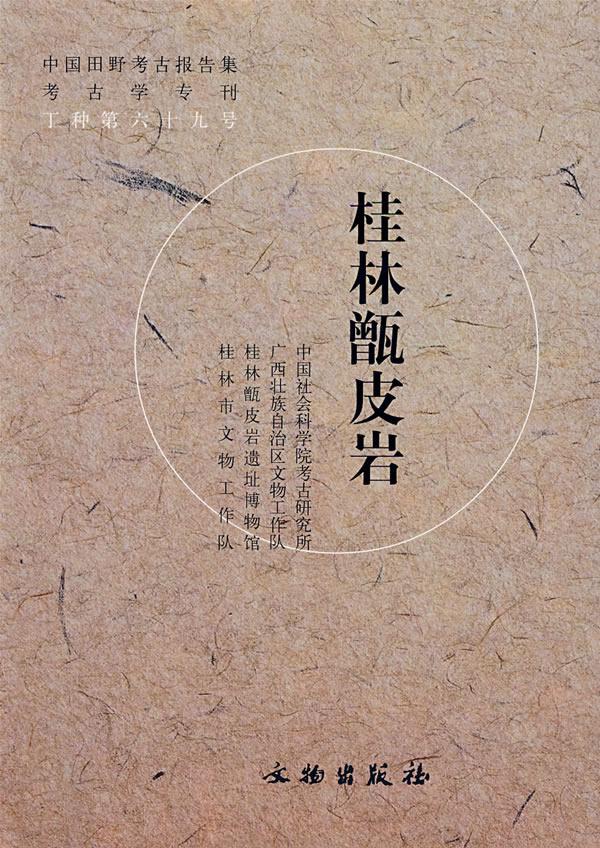 中国田野考古报告集
考古学专刊
丁种第六十九号
桂林甑皮岩
中国社会科学院考古研究所
广西壮族自治区文物工作队
桂林甑皮岩遗址博物馆
桂林市文物工作队
文物出版社